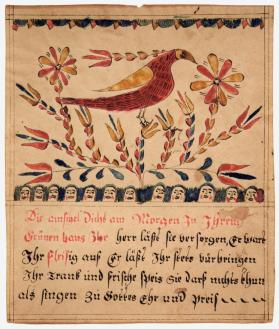 Die amsael Dicht am Morgen In Ihrem
Grünen haus Ihr herr läßt sie versorgen, Er wart
Ihr fleisig auf Er läßt Ihr stets bürbringen
Ihr Trank und frische speis Sie darf nichts thun
als singen Zu Gottes Ehr und Preis